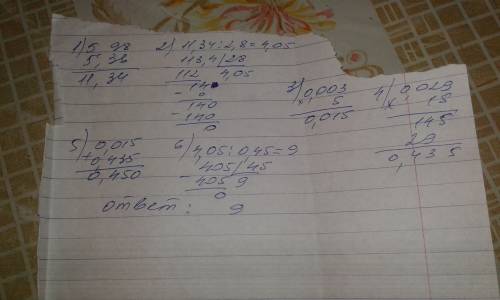 1) 5,98
5,36
11,34
2) 11,34:2,8=4,05
113,4/28
112 4,05
14
- 0
140
- 140
0
3) 0,003
× 5
0,015
4) 0,029
× 15
145
29
0,435
5) 0,015
+0,435
0,450
6) 4,05:0,45=9
405/45
405 9
0
ответ: 9